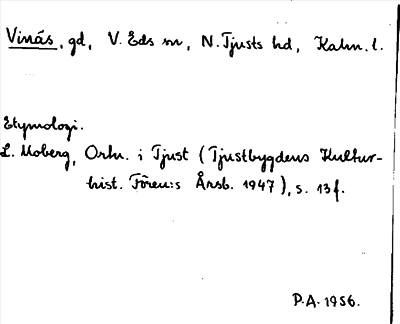 Vinäs, gd, V. Eds sn, N. Tjusts hd, Kalm. l.
Etymologi.
L. Moberg, Ortn. i Tjust (Tjustbygdens Kultur-
hist. Fören:s Årsb. 1947), s. 13 f.
P.A. 1956.